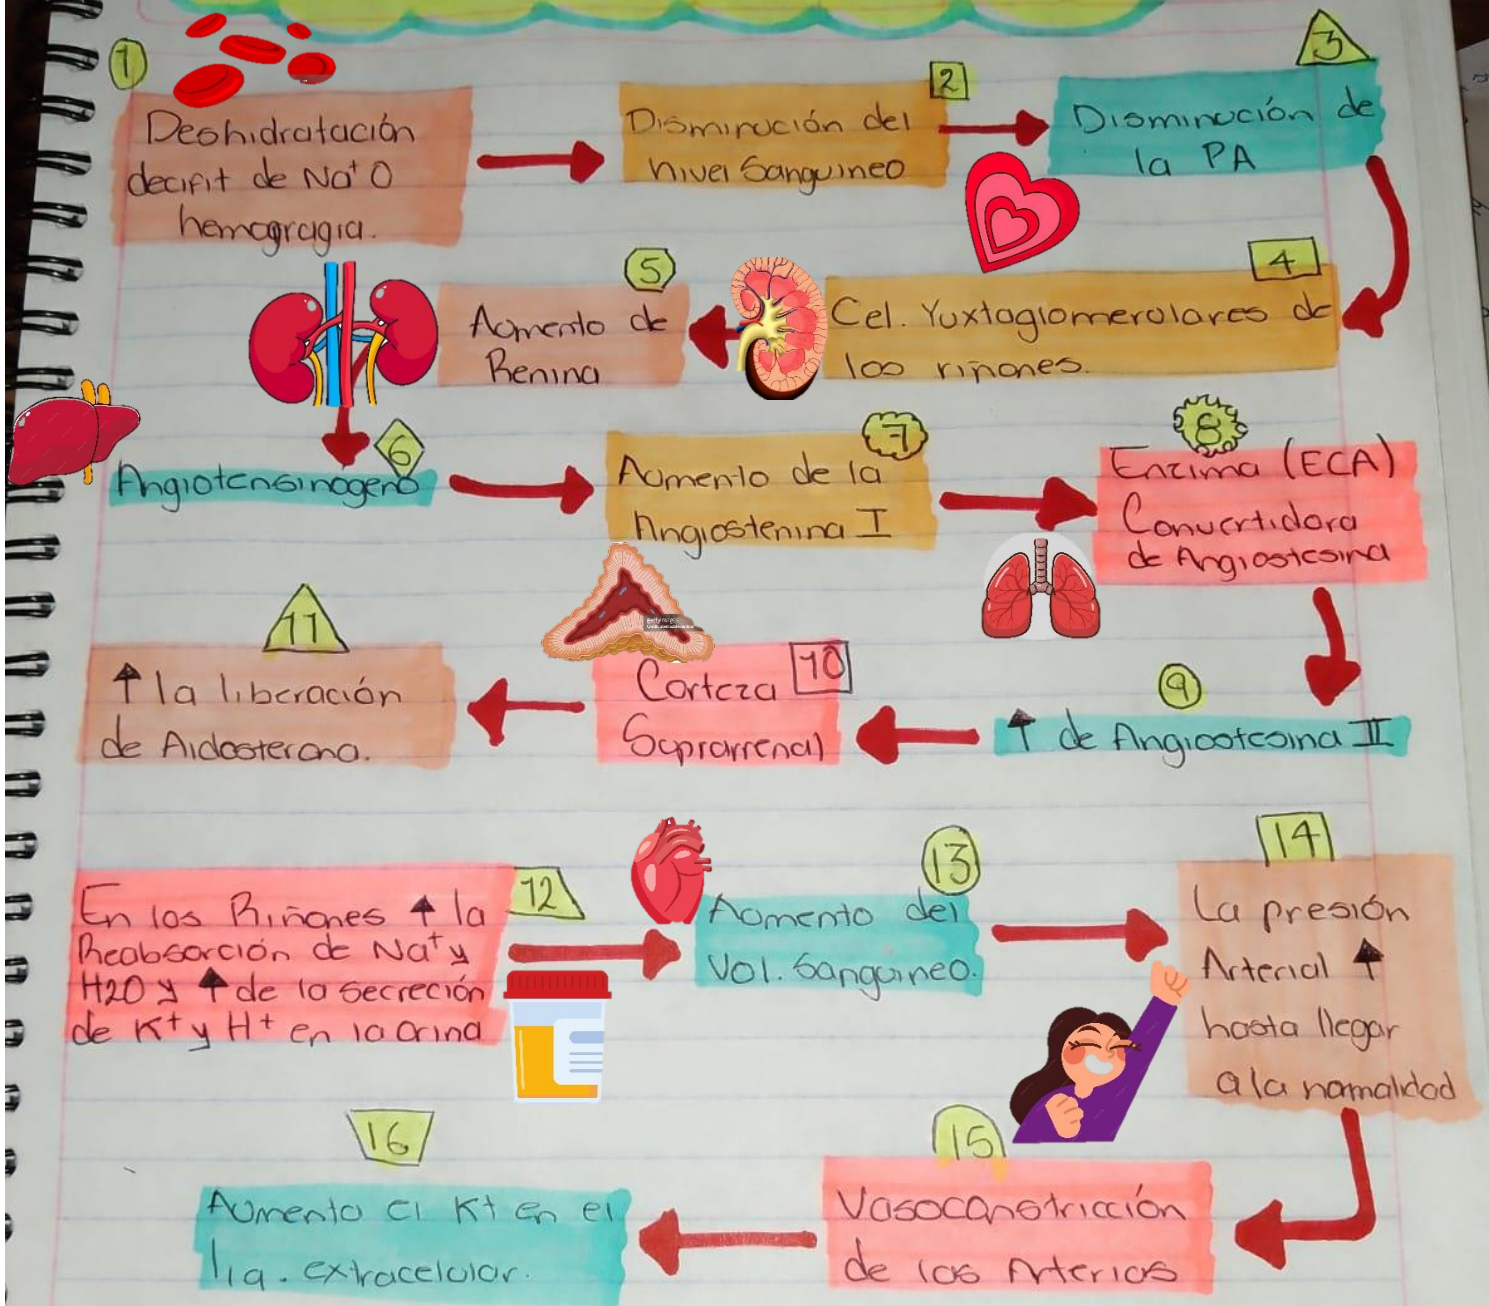 1
Deshidratación
decifit de Na+ O
hemogragia.
2
Disminución del
nivel Sanguineo
3
Disminución de
la PA
4
Cel. Yuxtaglomerulares de
los riñones.
5
Aumento de
Renina
6
Angiotensinogeno
7
Aumento de la
Angiostenina I
8
Enzima (ECA)
Convertidora
de Angiostesina
9
↑ de Angiostesina II
10
Corteza
Suprarrenal
11
↑ la liberación
de Aldosterona.
12
En los Riñones ↑ la
Reabsorción de Na+ y
H2O y ↑ de la secreción
de K+ y H+ en la Orina
13
Aumento del
Vol. Sanguineo.
14
La presión
Arterial ↑
hasta llegar
a la normalidad
15
Vasoconstricción
de las Arterias
16
Aumento el K+ en el
liq. extracelular.